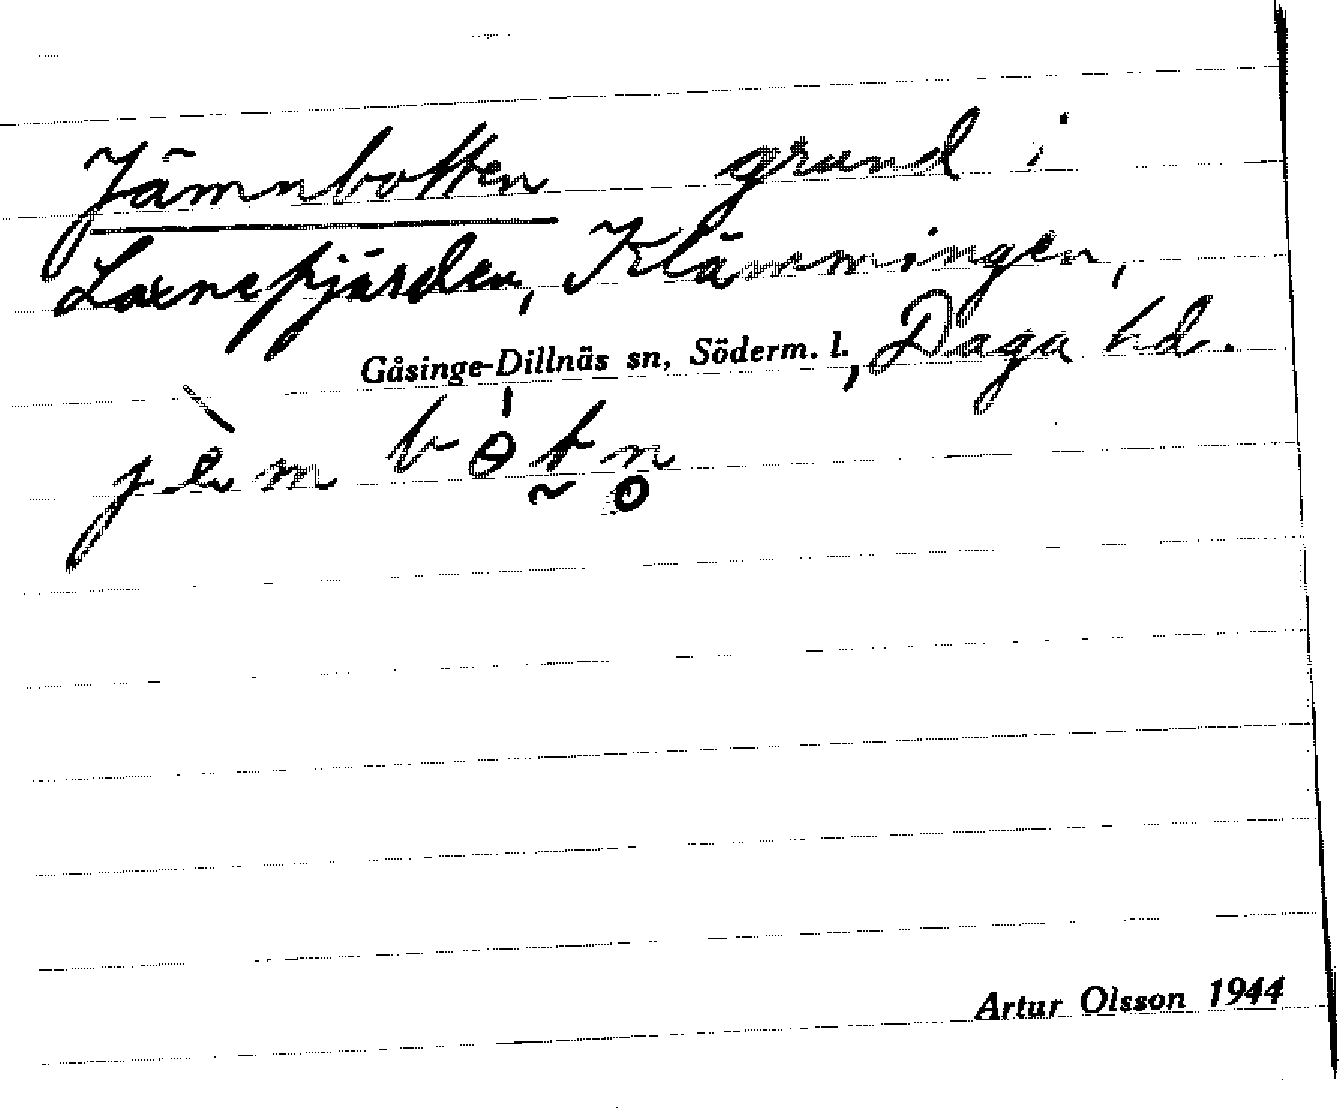 Jämnbotten grund i
Laxnefjärden, Klämmingen,
Gåsinge-Dillnäs sn, Söderm. l., Daga hd.
jèm bɵ́t̰n̥
Artur Olsson 1944